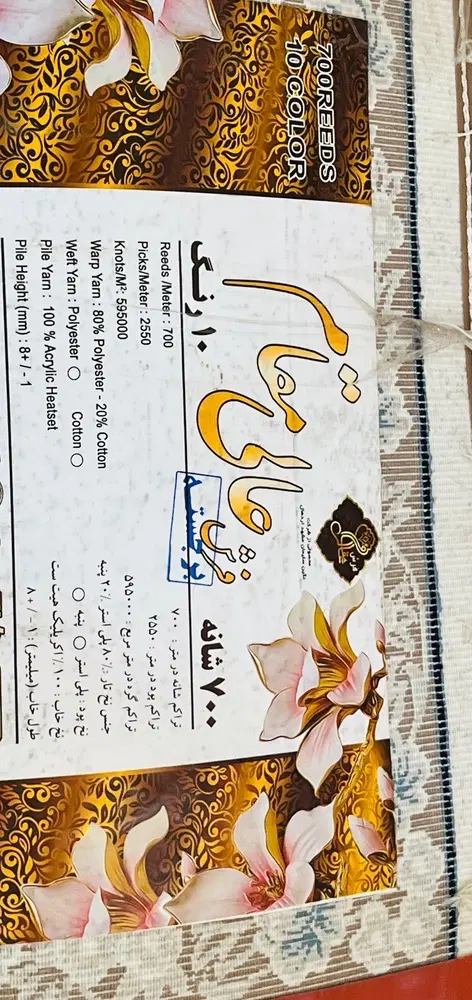 700REEDS
10 COLOR
۱۰ رنگ
۷۰۰ شانه
فرش
عالی
برجسته
Reeds /Meter : 700
Picks/Meter : 2550
Knots/M²: 595000
Warp Yarn : 80% Polyester - 20% Cotton
Weft Yarn : Polyester Cotton
Pile Yarn : 100 % Acrylic Heatset
Pile Height (mm) : 8+ / - 1
تراکم شانه در متر : ۷۰۰
تراکم پود در متر : ۲۵۵۰
تراکم گره در متر مربع : ۵۹۵۰۰۰
جنس نخ تار : ۸۰٪ پلی استر ۲۰٪ پنبه
نخ پود : پلی استر پنبه
نخ خاب : ۱۰۰٪ اکریلیک هیت ست
طول خاب (میلیمتر) : ۱- / + ۸